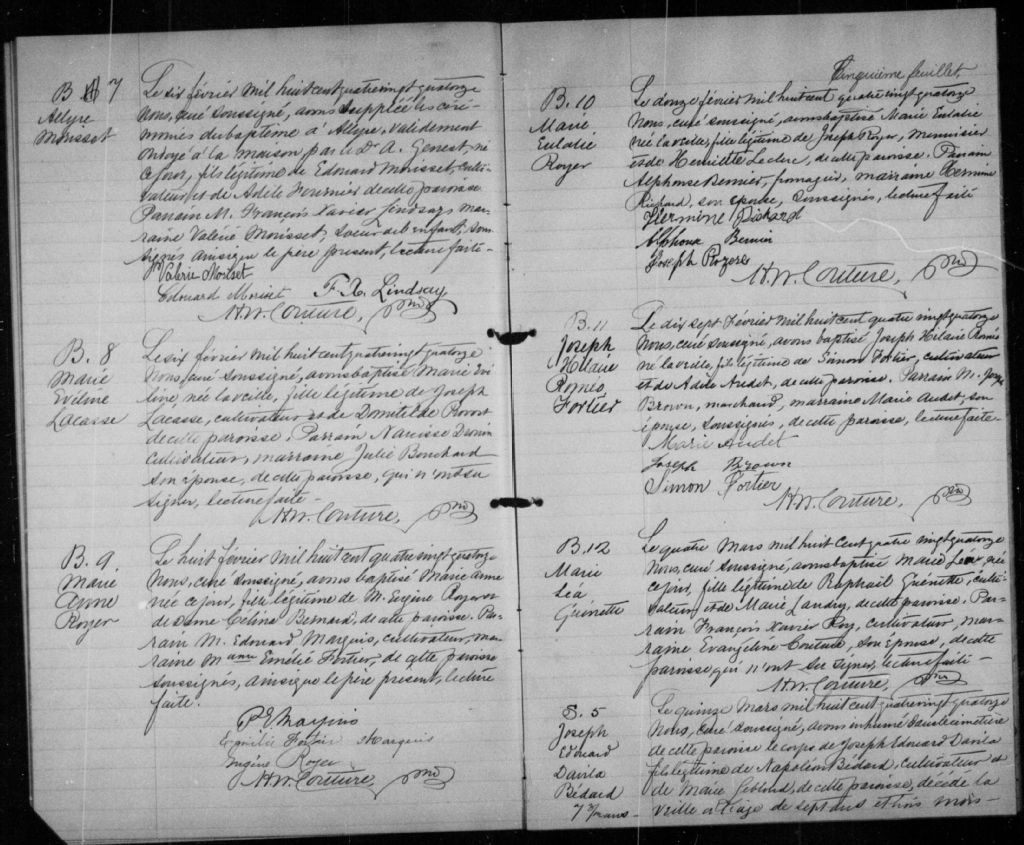 B. 7
Allyre
Morisset
Le six février mil huit cent quatre vingt quatorze
Nous, curé soussigné, avons suppléé les céré-
monies du baptême à Allyre, validement
ondoyé à la maison par le Dr A. Genest né
ce jour, fils légitime de Edouard Morisset, culti-
vateur, et de Adèle Fournier de cette paroisse
Parrain M. François Xavier Lindsay, mar-
raine Valérie Morisset, soeur de l'enfant, sous-
signés ainsi que le père présent, lecture faite-
Valerie Morisset
Edouard Morisset F. X. Lindsay,
H.W. Couture, ptre
B. 8
Marie
Eveline
Lacasse
Le six février mil huit cent quatre vingt quatorze
Nous, curé soussigné, avons baptisé Marie Eve
line, née la veille, fille légitime de Joseph
Lacasse, cultivateur et de Domitilde
de cette paroisse. Parrain Narcisse Drouin
cultivateur, marraine Julie Bouchard
son épouse, de cette paroisse, qui n'ont su
signer, lecture faite-
H.W. Couture, ptre
B. 9.
Marie
Anne
Royer
Le huit février mil huit cent quatre vingt quatorze
Nous, curé soussigné, avons baptisé Marie Anne
née ce jour, fille légitime de M. Eugène Royer et
de Dame Celina Bernard, de cette paroisse. Par-
rain M. Edouard Marquis, cultivateur, mar-
raine Emélie Fortier, de cette paroisse
soussignés, ainsi que le père présent, lecture
faite.
Emélie Fortier Marquis
Eugène Royer
H.W. Couture, ptre
Cinquième feuillet.
B. 10
Marie
Eulalie
Royer
Le douze février mil huit cent quatre vingt quatorze
Nous, curé soussigné, avons baptisé Marie Eulalie
née la veille, fille légitime de Joseph Royer, menuisier
et de Henriette Leclerc, de cette paroisse. Parrain
Alphonse Bernier, fromager, marraine Hermine
Pickard, son épouse, soussignés, lecture faite
Hermine Pickard
Alphonse Bernier
Joseph Royer
H.W. Couture, ptre
B. 11
Joseph
Hilaire
Roméo
Fortier
Le dix sept février mil huit cent quatre vingt quatorze
Nous, curé soussigné, avons baptisé Joseph Hilaire Roméo
né la veille, fils légitime de Simon Fortier, cultivateur
et de Adèle Audet, de cette paroisse. Parrain M. Joseph
Brown, marchand, marraine Marie Audet, son
épouse, soussignés, de cette paroisse, lecture faite-
Marie Audet
Joseph Brown
Simon Fortier
H.W. Couture, ptre
B. 12
Marie
Léa
Guénette
Le quatre Mars mil huit cent quatre vingt quatorze
Nous, curé soussigné, avons baptisé Marie Léa née
ce jour, fille légitime de Raphaël Guénette, culti-
vateur, et de Marie Landry, de cette paroisse. Par-
rain François Xavier Roy, cultivateur, mar-
raine Evangéline Couture, son épouse, de cette
paroisse qui n'ont su signer, lecture faite-
H.W. Couture, ptre
S. 5
Joseph
Edouard
Davila
Bédard
7 ans
Le quinze Mars mil huit cent quatre vingt quatorze
Nous, curé soussigné, avons inhumé dans le cimetière
de cette paroisse le corps de Joseph Edouard Davila
fils légitime de Napoléon Bédard, cultivateur et
de Marie Leblond, de cette paroisse, décédé la
veille à l'âge de sept ans et trois mois-